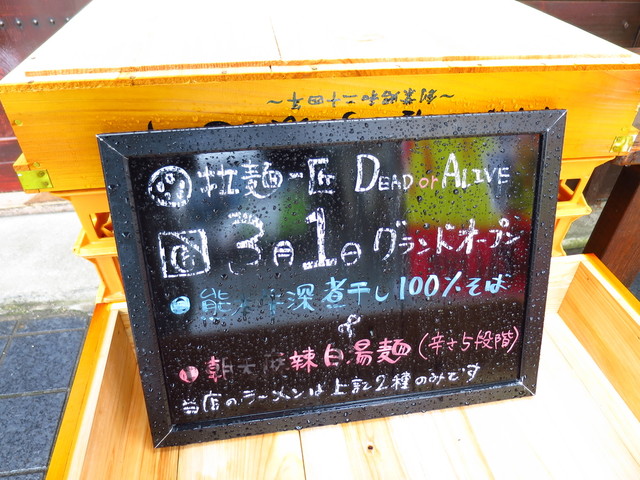 ~創業昭和二十四年~
拉麺一匠 DEAD or ALIVE
3月1日 グランドオープン
深煮干し100%そば
&
辣白湯麺(辛さ5段階)
当店のラーメンは上記2種のみです